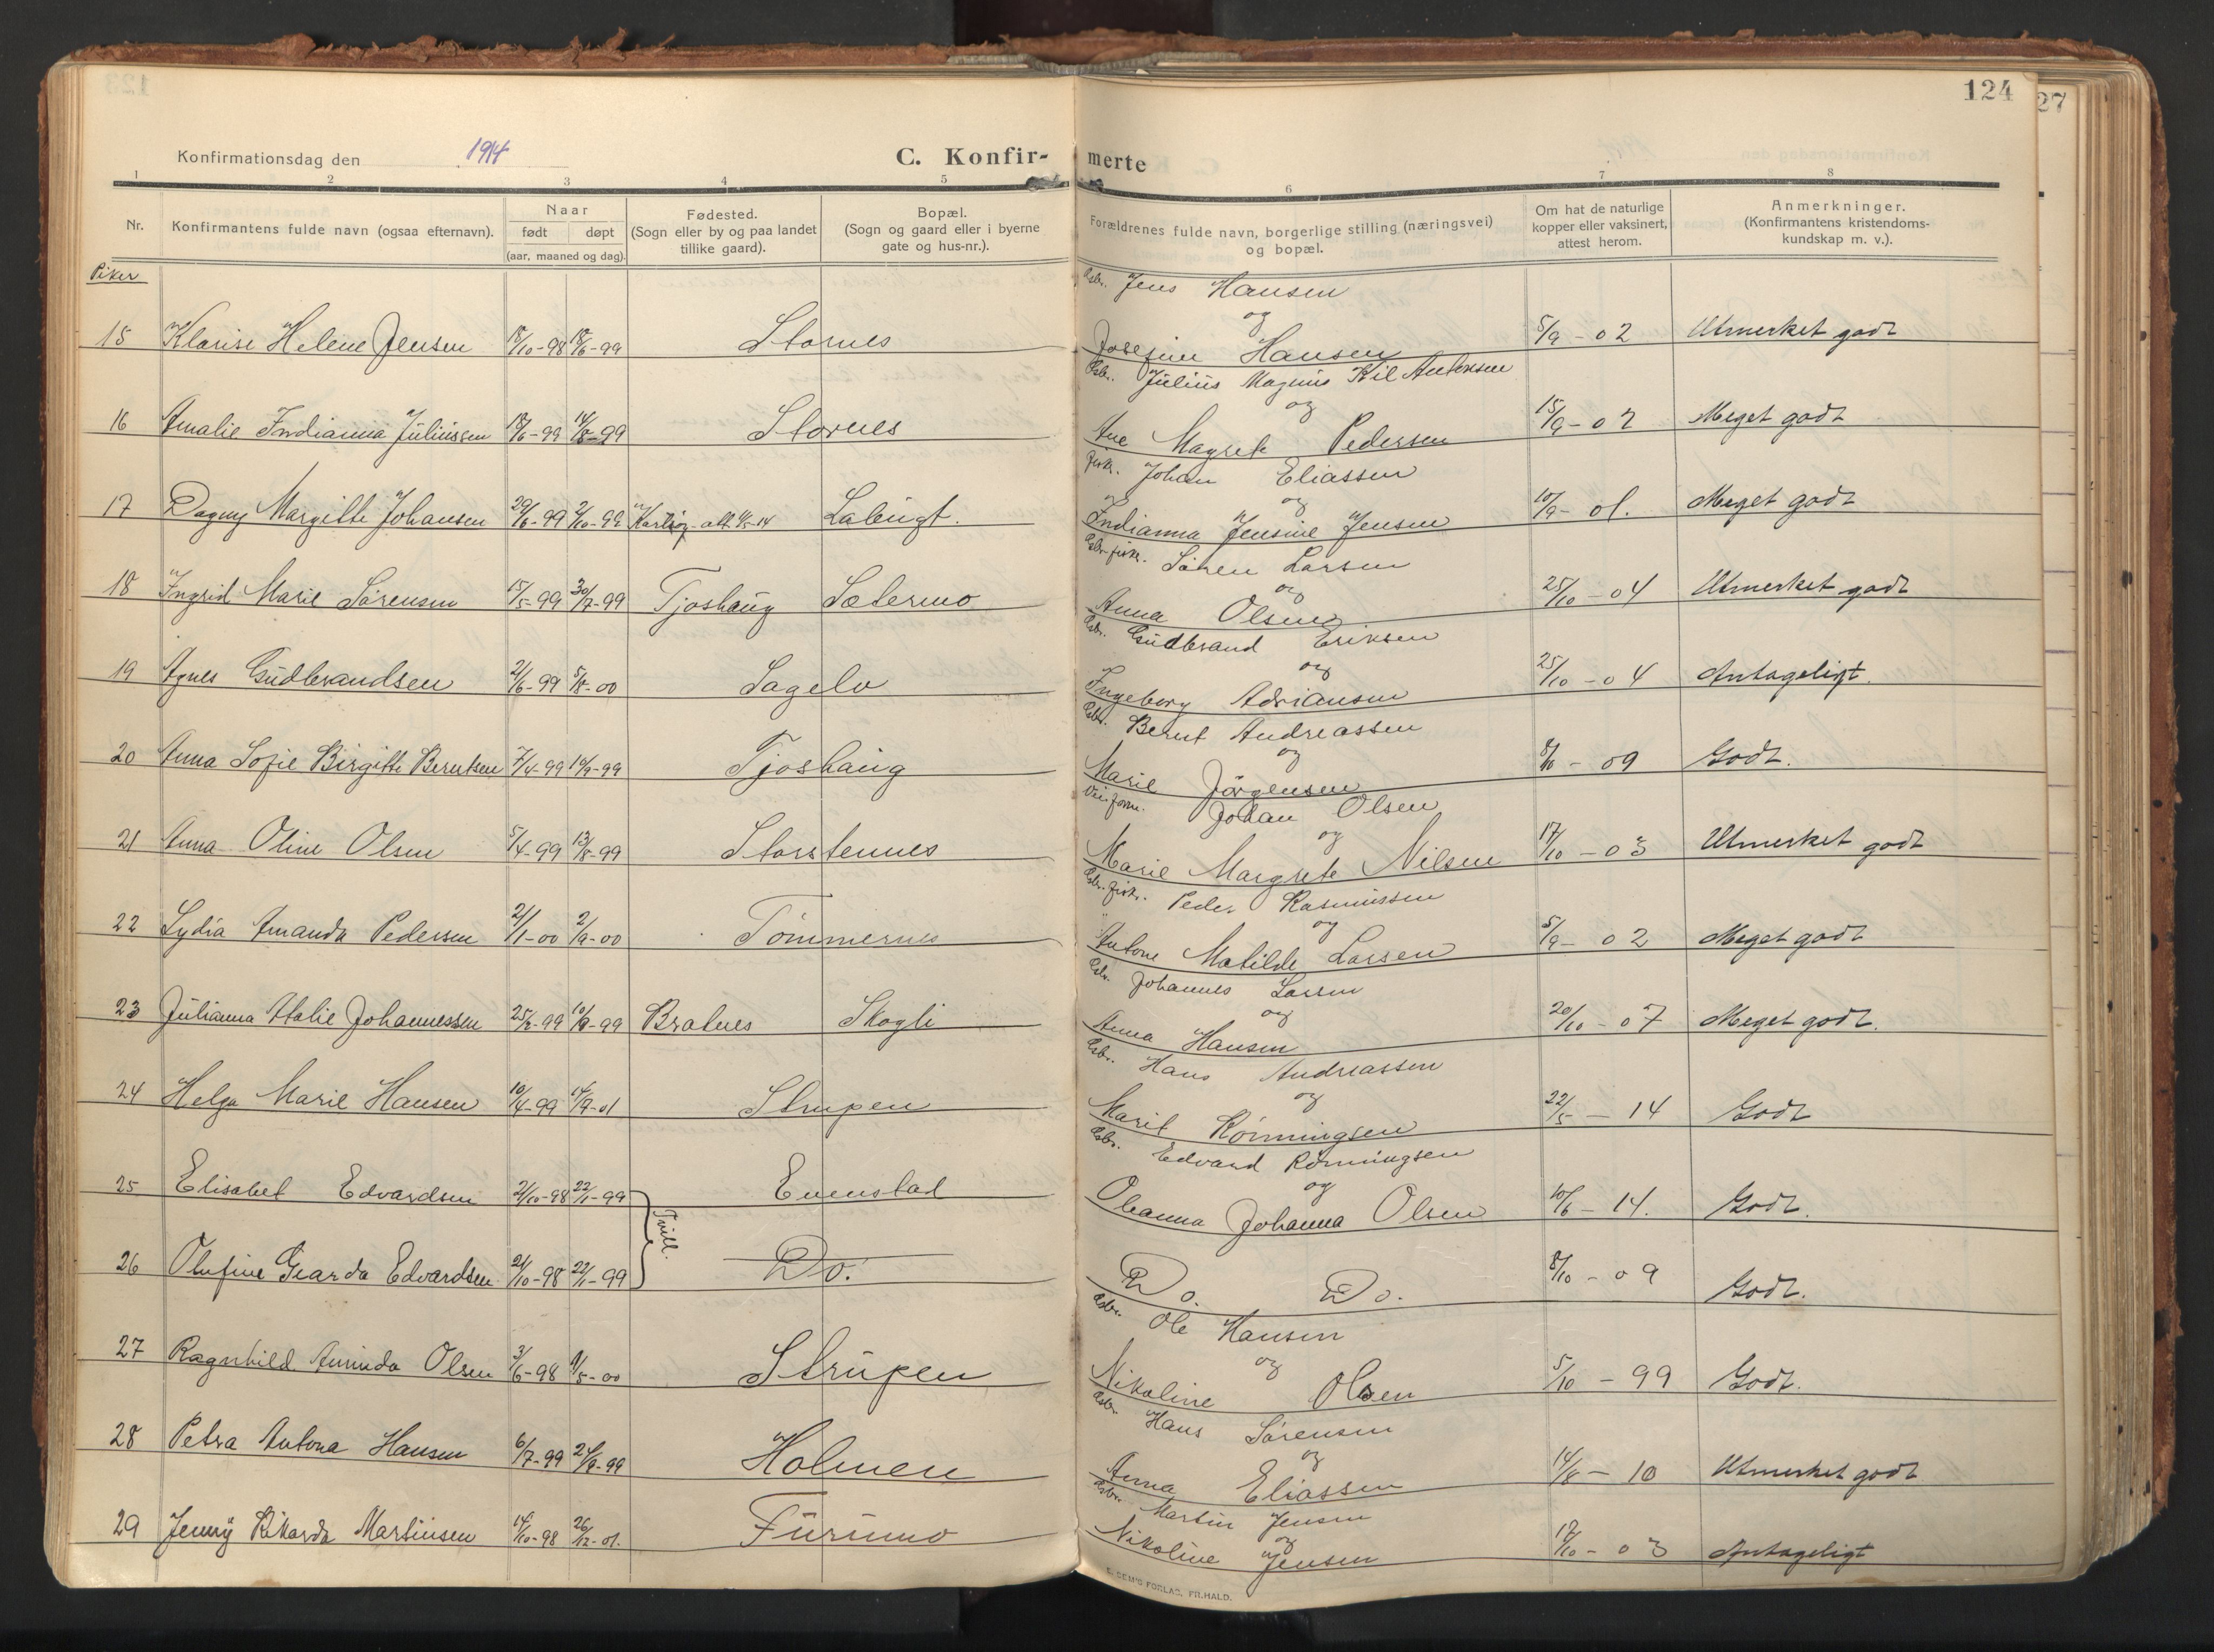 124
27
Konfirmationsdag den 1914
C. Konfir- merte
1 2 3 4 5 6 7 8
Nr.
Konfirmantens fulde navn (ogsaa efternavn).
Naar
født
døpt
(aar, maaned og dag).
Fødested.
(Sogn eller by og paa landet
tillike gaard).
Bopæl.
(Sogn og gaard eller i byerne
gate og hus-nr.).
Forældrenes fulde navn, borgerlige stilling (næringsvei)
og bopæl.
Om hat de naturlige
kopper eller vaksinert,
attest herom.
Anmerkninger.
(Konfirmantens kristendoms-
kundskap m. v.).
Piker
Gbr. Jens Hansen
og
15 Klarise Helene Jensen 18/10-98 18/6-99 Stornes Josefine Hansen 5/9-02 Utmerket godt
Gbr. Julius Magnus Kil Antonsen
og
16 Amalie Indianna Juliussen 18/6-99 14/8-99 Stornes Ane Magrete Pedersen 15/9-02 Meget godt
Fisk. Johan Eliassen
og
17 Dagny Margitte Johansen 29/6-99 2/10-99 Karlsøy att. Labugt. Indianna Jensine Jensen 10/9-01. Meget godt
Gbr. fisk. Sören Larsen
og
18 Ingrid Marie Sörensen 15/5-99 30/7-99 Tjoshaug Sætermo Anna Olsen 25/10-04 Utmerket godt
Gbr. Gudbrand Eriksen
og
19 Agnes Gudbrandsen 2/6-99 5/8-00 Sagelv Ingeborg Adriansen 25/10-04 Antageligt.
Gbr. Bernt Andreassen
og
20 Anna Sofie Birgitte Berntsen 7/4-99 10/9-99 Tjoshaug Marie Jörgensen 8/10-09 Godt.
Vei form. Johan Olsen
og
21 Anna Oline Olsen 5/4-99 13/8-99 Storstennes Marie Margrete Nilsen 17/10-03 Utmerket godt
Gbr. fisk. Peder Rasmussen
og
22 Lydia Amanda Pedersen 2/1-00 2/9-00 Tömmernes Antone Matilde Larsen 5/9-02 Meget godt
Gbr. Johannes Larsen
og
23 Julianna Atalie Johannessen 25/2-99 10/9-99 Bratnes Skogli Anna Hansen 20/10-07 Meget godt.
Gbr. Hans Andreassen
og
24 Helga Marie Hansen 10/4-99 14/7-01 Strupen Marit Rönningsen 22/5-14 Godt
Gbr. Edvard Rönningsen
og
25 Elisabet Edvardsen 21/10-98 22/1-99 Tvill. Evenstad Oleanna Johanna Olsen 10/6-14. Godt.
26 Olufine Gearda Edvardsen 21/10-98 22/1-99 Do. Do. Do. 8/10-09 Godt.
Gbr. Ole Hansen
og
27 Ragnhild Aminda Olsen 3/6-98 9/5-00 Strupen Nikoline Olsen 5/10-99 Godt.
Gbr. Hans Sörensen
og
28 Petra Antona Hansen 6/7-99 24/9-99 Holmen Anna Eliassen 14/8-10 Utmerket godt
Gbr. Martin Jensen
og
29 Jenny Rikarda Martinsen 14/10-98 26/12-01. Furumo Nikoline Jensen 17/10-03 Antageligt
E. SEM'S FORLAG, FR.HALD.